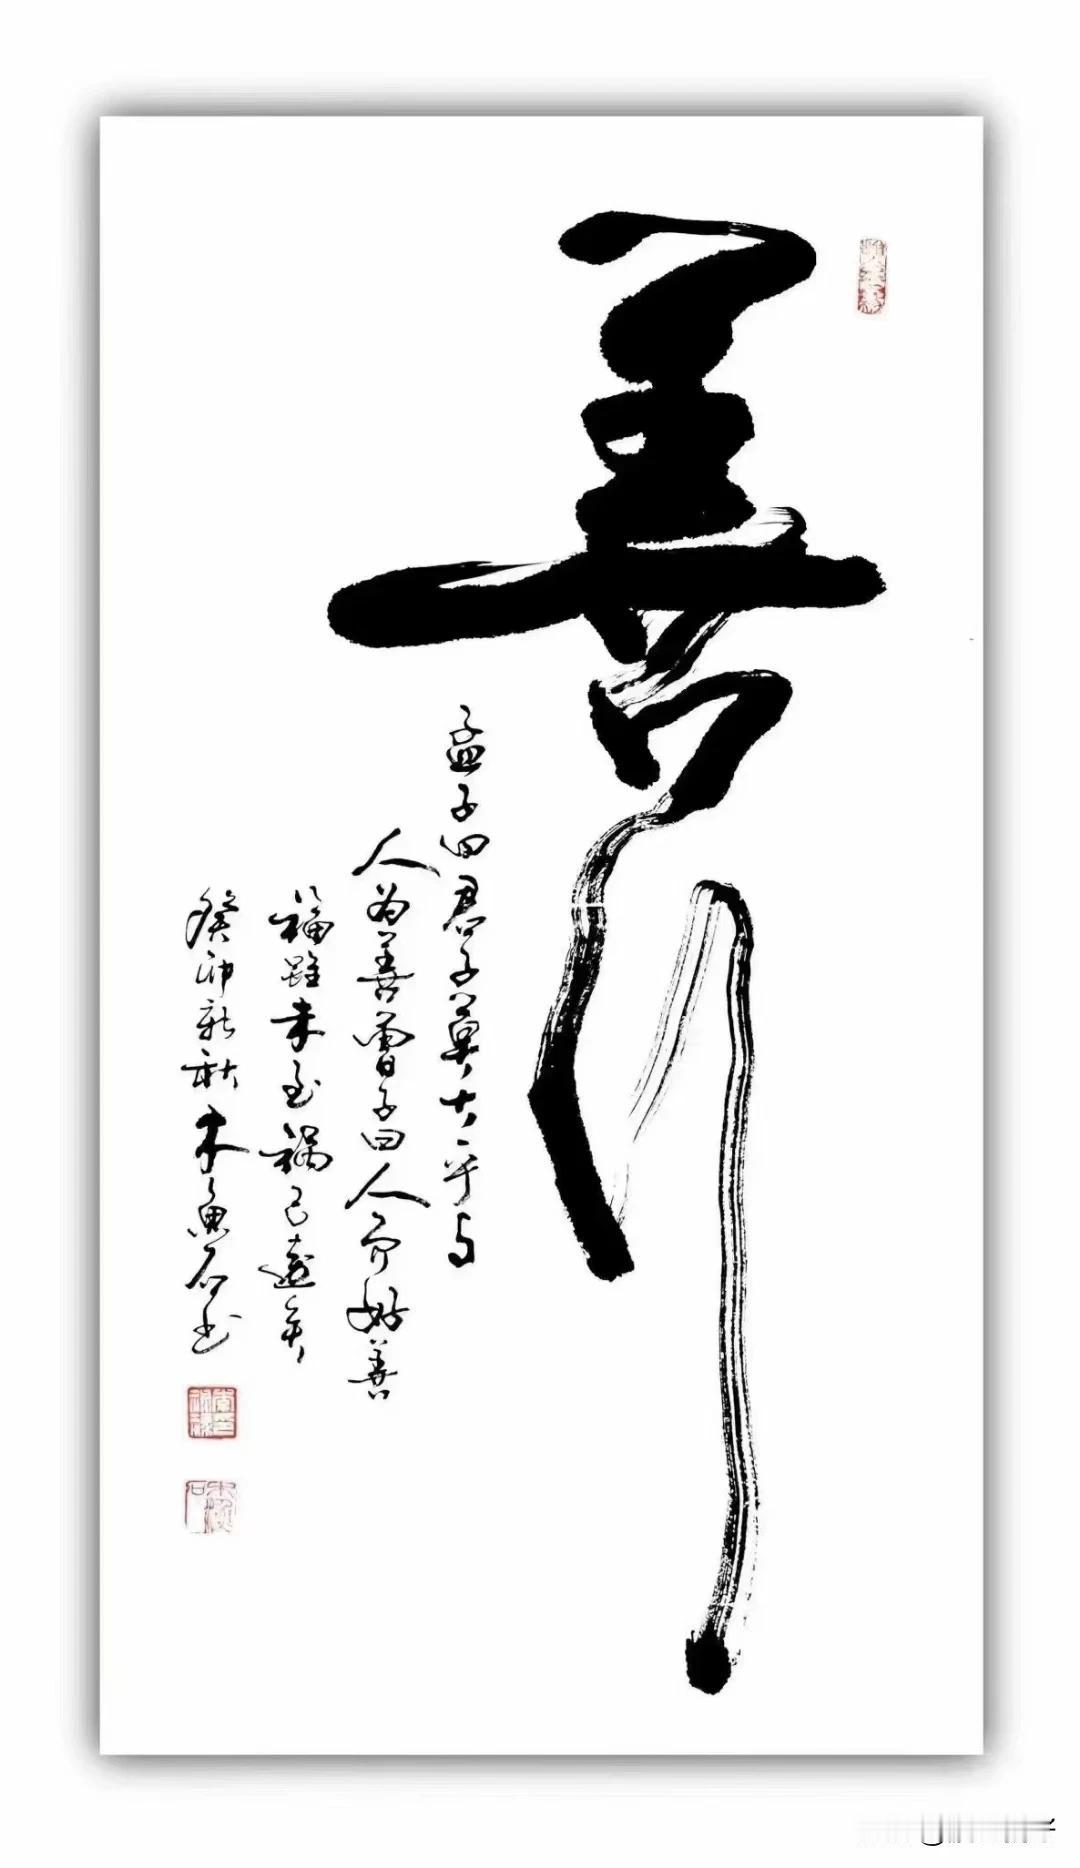 善行
孟子曰君子莫大乎与
人为善曾子曰人而好善
福雖未至祸已遠矣
癸卯新秋木魚石书